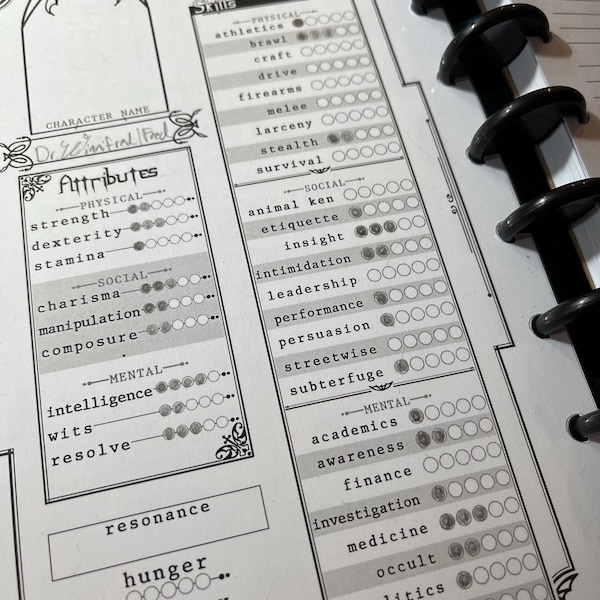 CHARACTER NAME
Dr. Winifred/Fred
Attributes
PHYSICAL
strength
dexterity
stamina
SOCIAL
charisma
manipulation
composure
MENTAL
intelligence
wits
resolve
resonance
hunger
Skills
PHYSICAL
athletics
brawl
craft
drive
firearms
melee
larceny
stealth
survival
SOCIAL
animal ken
etiquette
insight
intimidation
leadership
performance
persuasion
streetwise
subterfuge
MENTAL
academics
awareness
finance
investigation
medicine
occult